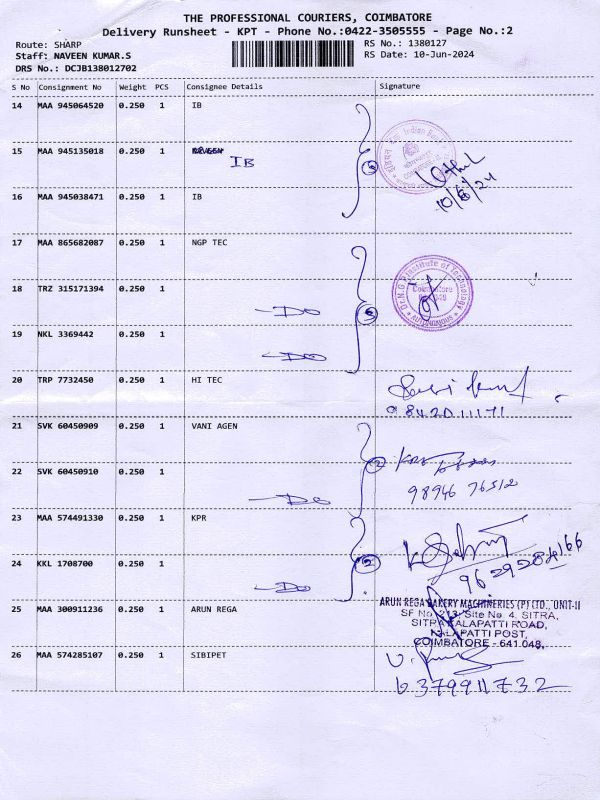 THE PROFESSIONAL COURIERS, COIMBATORE
Delivery Runsheet - KPT - Phone No.:0422-3505555 - Page No.:2
Route: SHARP
Staff: NAVEEN KUMAR.S
DRS No.: DCJB138012702
RS No.: 1380127
RS Date: 10-Jun-2024
S No Consignment No Weight PCS Consignee Details Signature
14 MAA 945064520 0.250 1 IB
15 MAA 945135018 0.250 1 IB
16 MAA 945038471 0.250 1 IB
Indian
10/6/24
17 MAA 865682087 0.250 1 NGP TEC
18 TRZ 315171394 0.250 1 -Do
19 NKL 3369442 0.250 1 -Do
Dr.N.G.P. Institute of Technology
Coimbatore
AUTONOMOUS
20 TRP 7732450 0.250 1 HI TEC
9842011171
21 SVK 60450909 0.250 1 VANI AGEN
22 SVK 60450910 0.250 1 -Do
2
98946 76512
23 MAA 574491330 0.250 1 KPR
24 KKL 1708700 0.250 1 -Do
2
9629284166
25 MAA 300911236 0.250 1 ARUN REGA
ARUN REGA BAKERY MACHINERIES (P) LTD., UNIT-II
SF No. 213, Site No 4, SITRA,
SITRA KALAPATTI ROAD,
KALAPATTI POST,
COIMBATORE - 641 048.
26 MAA 574285107 0.250 1 SIBIPET
6379911732